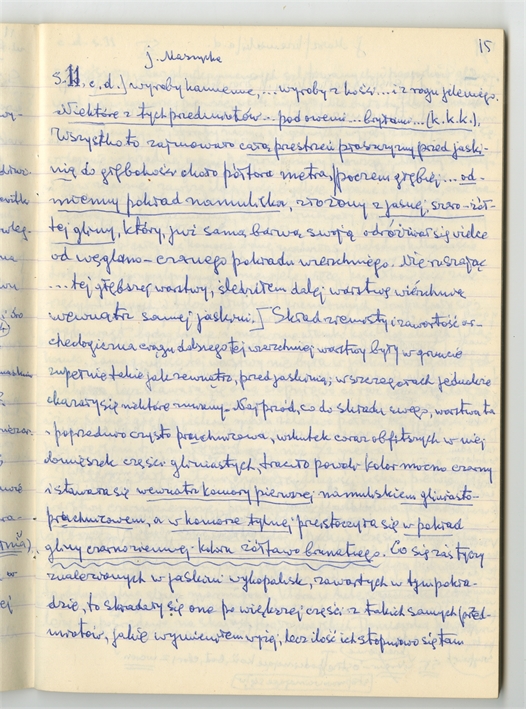 15
j. Maszycka
S. 11. c.d.] wyroby kamienne, ... wyroby z kości ... i z rogu jeleniego.
Niektóre z tych przedmiotów ... pod owemi ... bryłami ... (k.k.k.),
Wszystko to zajmowało całą przestrzeń płaszczyzny przed jaski-
nią do głębokości około półtora metra, poczem głębiej ... od-
miemy pokład namuliska, złożony z jasnej, szaro-żół-
tej gliny, który, już samą barwą swoją odróżniał się wielce
od węglano-czarnego pokładu wierzchniego. Nie ruszając
... tej głębszej warstwy, śledziłem dalej warstwę wierzchnią
wewnątrz samej jaskini.] Skład ziemisty i zawartość ar-
cheologiczna ciągu dalszego tej wierzchniej warstwy były w gruncie
zupełnie takie jak zewnątrz, przed jaskinią; w szczegółach jednakże
okazały się niektóre zmiany. Naj przód, co do składu swego, warstwa ta
poprzednio czysto próchnicowa, wskutek coraz obfitszych w niej
domieszek części gliniastych, traciła powoli kolor mocno czarny
i stawała się wewnątrz komory pierwszej namuliskiem gliniasto-
próchnicowem, a w komorze tylnej przeistoczyła się w pokład
gliny czarnoziemnej koloru żółtawo brunatnego. Co się zaś tyczy
znalezionych w jaskini wykopalisk, zawartych w tym pokła-
dzie, to składały się one po większej części z takich samych przed-
miotów, jakie wymieniłem wyżej, lecz ilość ich stopniowo się tam